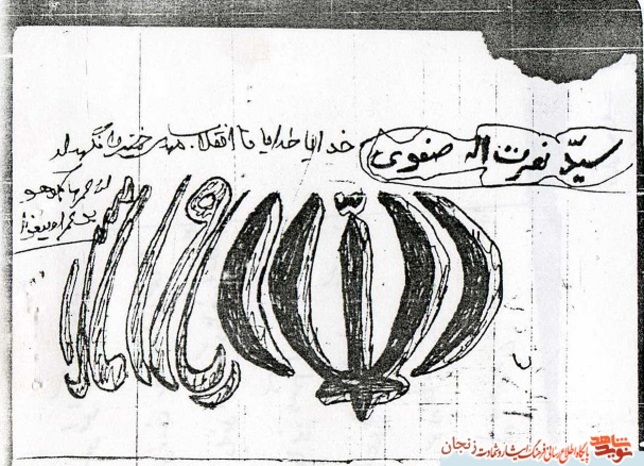 سیّد نصرت اله صفوی
خدایا خدایا تا انقلاب مهدی خمینی را نگهدار
از عمر ما بکاه و
بر عمر او بیفزا
نوید شاهد
پایگاه اطلاع رسانی فرهنگ ایثار و شهادت زنجان